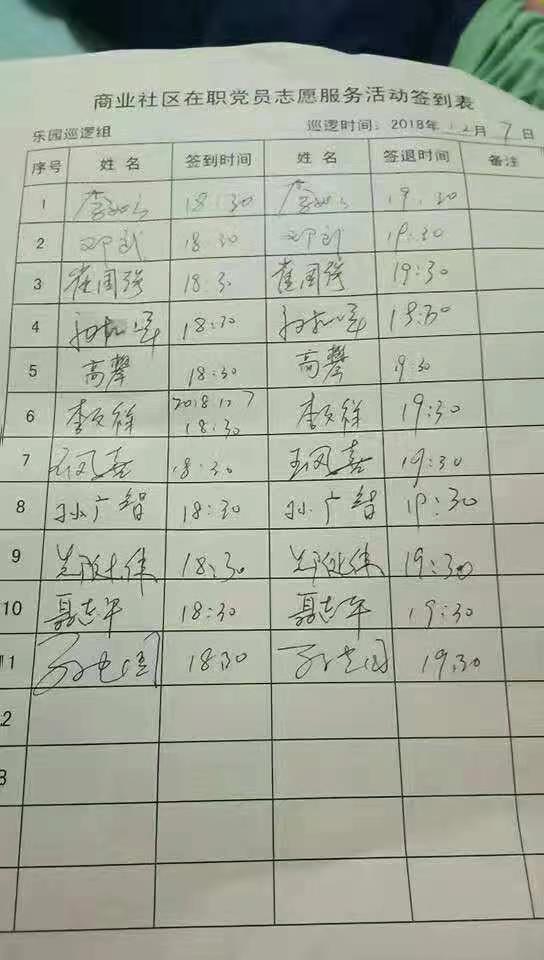 商业社区在职党员志愿服务活动签到表
乐园巡逻组 巡逻时间：2018年12月7日
序号 姓名 签到时间 姓名 签退时间 备注
1 18:30 19:30
2 邓武 18:30 邓武 19:30
3 崔国强 18:30 崔国强 19:30
4 18:30 19:30
5 高攀 18:30 高攀 19:30
6 2018.12.7
李 18:30 李 19:30
7 王凤嘉 18:30 王凤嘉 19:30
8 孙广智 18:30 孙广智 19:30
9 18:30 19:30
10 聂志军 18:30 聂志军 19:30
11 18:30 19:30
2
3